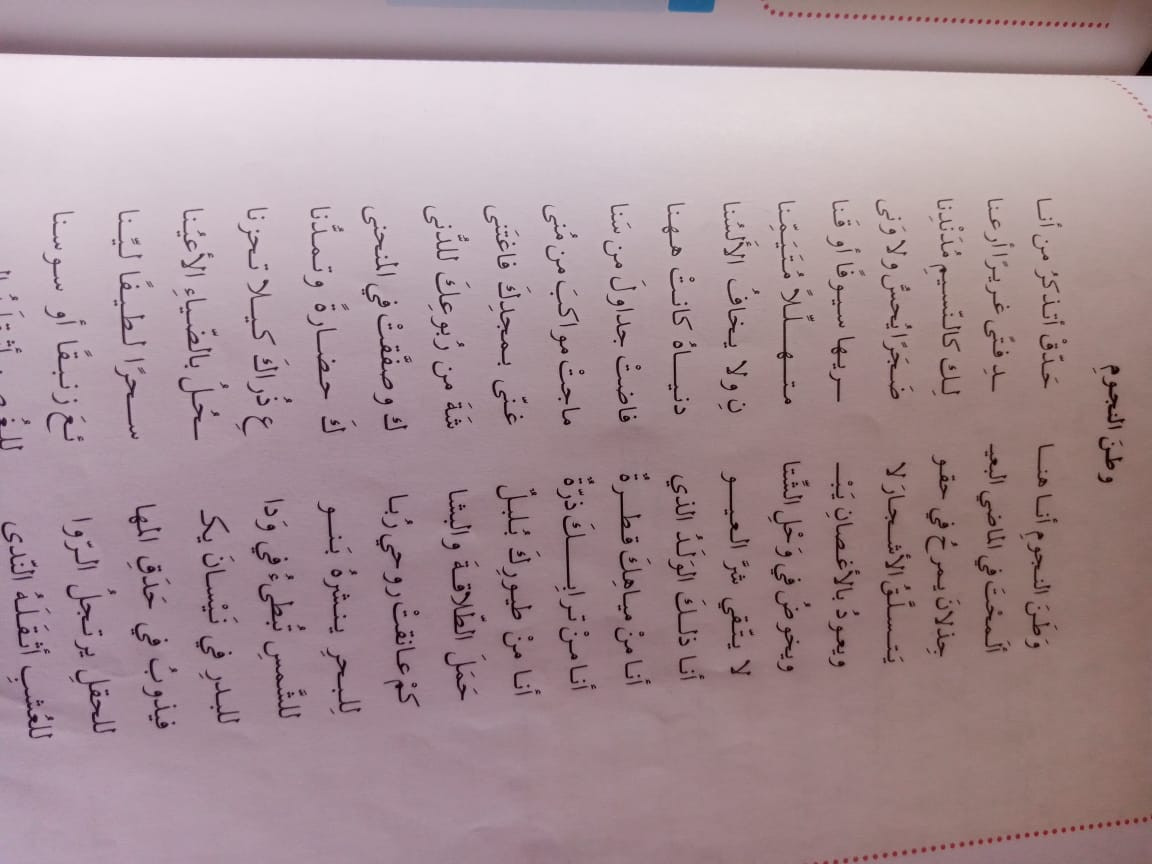 وطنَ النجومِ
وَطَنَ النجومِ أنا هنا حَدِّقْ أتذكرُ من أنا
ألَمحْتَ في الماضي البعيـ ـدِ فتًى غريرًا أرعنا
جذلانَ يمرحُ في حقو لِكَ كالنّسيمِ مُدَنْدِنا
يَتسلّقُ الأشجارَ لا ضَجَرًا يُحسُّ ولا وَنَى
ويعودُ بالأغصانِ يَبْـ ـريها سيوفًا أو قَنا
ويخوضُ في وَحْلِ الشّتا متهــلّلًا مُتَيَمّنا
لا يتّقي شرَّ العيـو نِ ولا يخافُ الألسُنا
أنا ذلكَ الوَلَدُ الذي دنيــاهُ كانتْ ههنا
أنا منْ مياهِكَ قطـرةٌ فاضتْ جداولَ من سَنا
أنا منْ ترابِــكَ ذرّةٌ ماجتْ مواكبَ من مُنى
أنا منْ طيورِكَ بُلبلٌ غنّى بمجدِكَ فاغتنى
حَمَلَ الطّلاقةَ والبشا شَةَ من رُبوعِكَ للدُّنى
كمْ عانقتْ روحي رُبا كَ وصفّقتْ في المنحنى
للبحرِ ينشرهُ بَنـو كَ حضارةً وتمدُّنا
للشّمسِ تُبطىءُ في وَدا عِ ذُراكَ كيلا تحزنا
للبدرِ في نَيْسانَ يكـ ـحُلُ بالضّياءِ الأعيُنا
فيذوبُ في حَدَقِ المها سـحرًا لطيفًا ليّنا
للحقلِ يرتجلُ الرّوا ئعَ زنبقًا أو سوسنا
للعُشبِ أثقَلَهُ النّدى